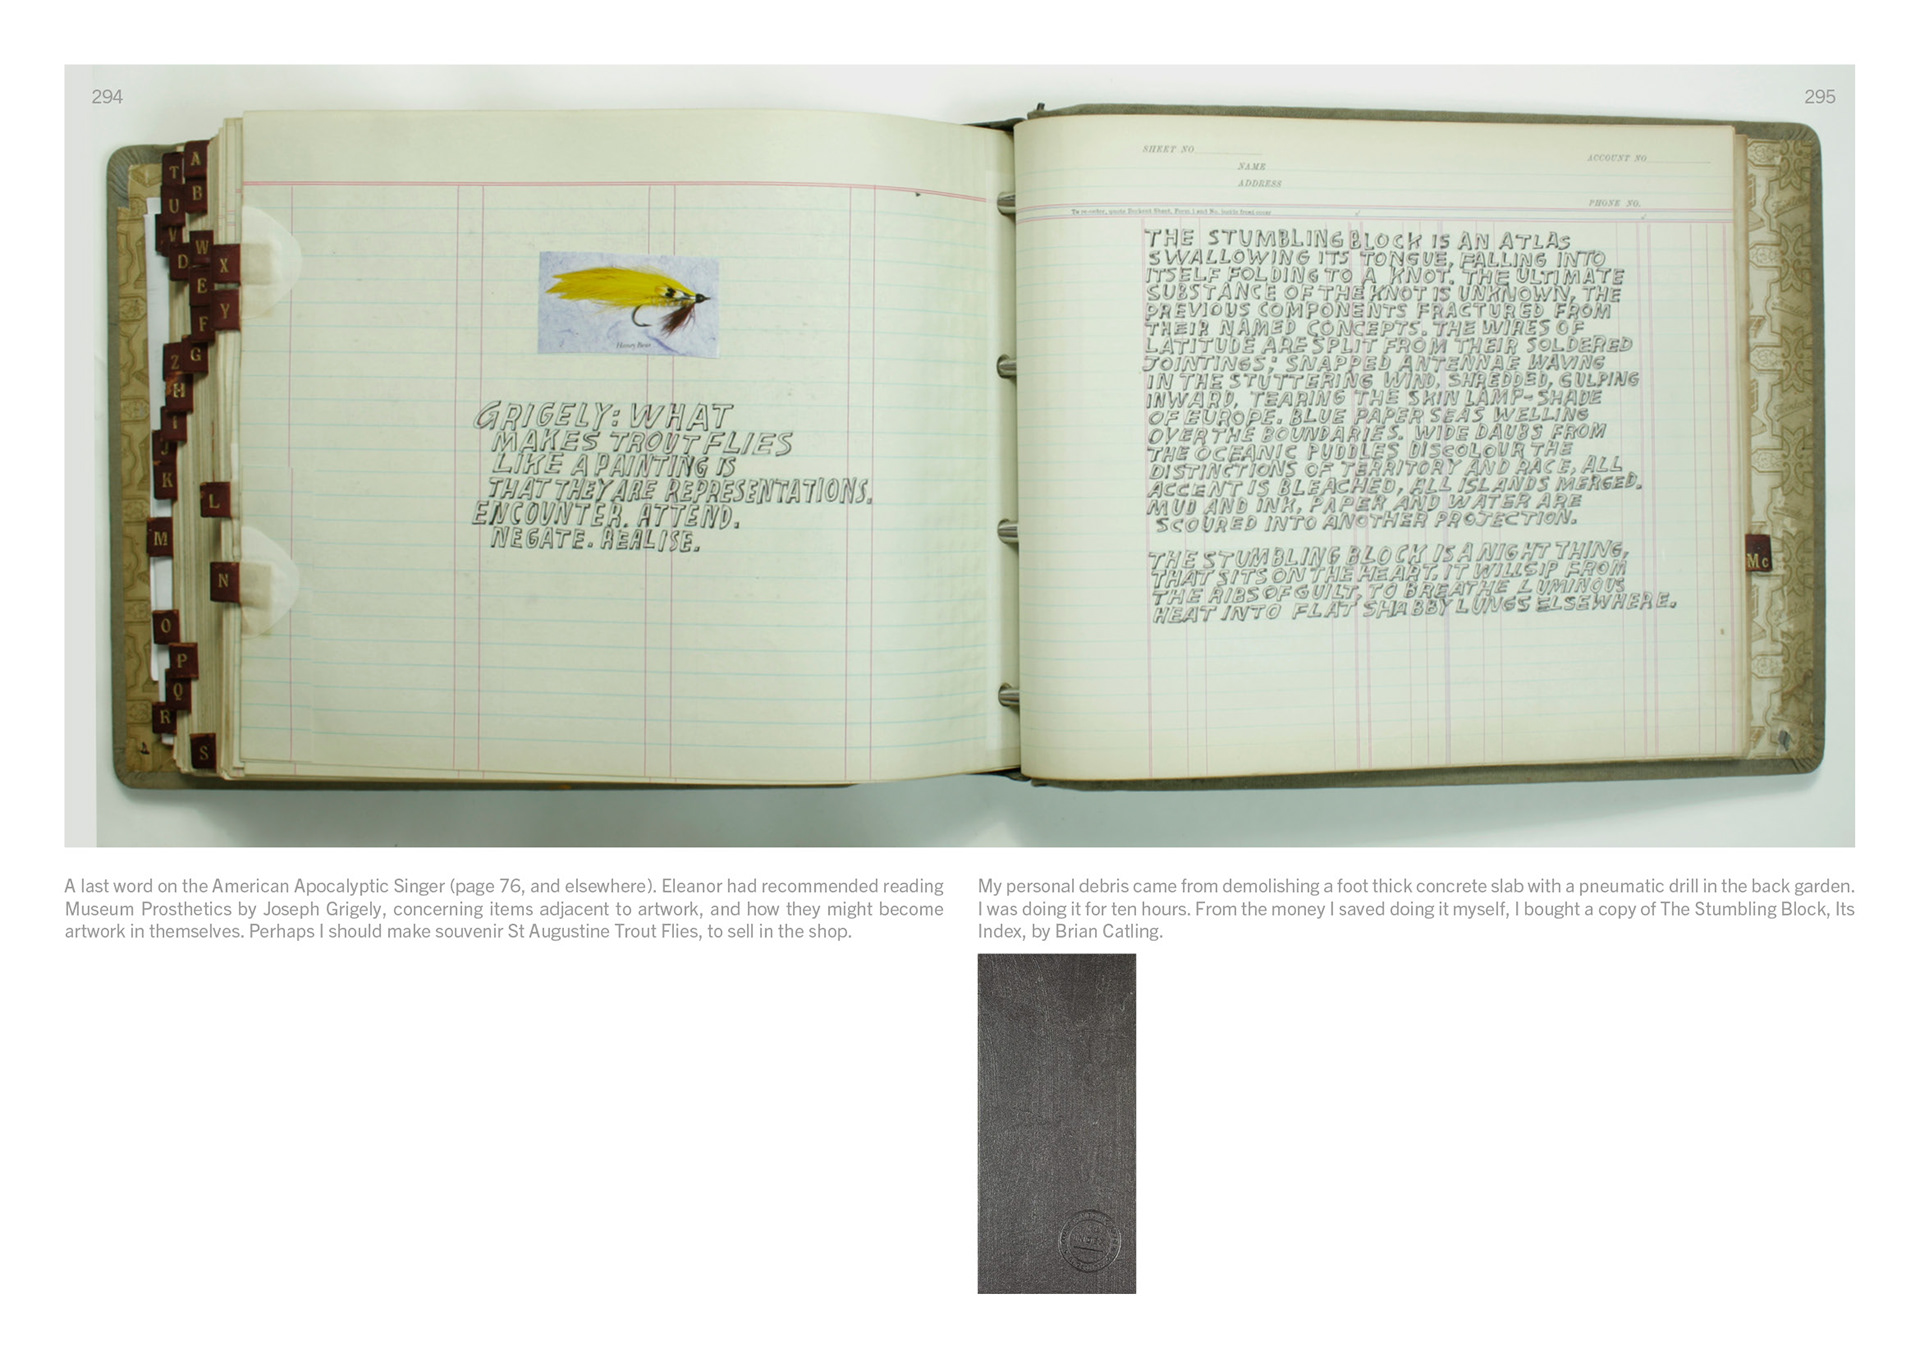 294
295
A
T
B
U
V
W
D
X
E
Y
F
G
Z
H
I
J
K
L
M
N
O
P
Q
R
S
Honey Bear
GRIGELY: WHAT
MAKES TROUT FLIES
LIKE A PAINTING IS
THAT THEY ARE REPRESENTATIONS.
ENCOUNTER. ATTEND.
NEGATE. REALISE.
SHEET NO
NAME
ADDRESS
ACCOUNT NO
PHONE NO.
THE STUMBLING BLOCK IS AN ATLAS
SWALLOWING ITS TONGUE, FALLING INTO
ITSELF FOLDING TO A KNOT. THE ULTIMATE
SUBSTANCE OF THE KNOT IS UNKNOWN, THE
PREVIOUS COMPONENTS FRACTURED FROM
THEIR NAMED CONCEPTS. THE WIRES OF
LATITUDE ARE SPLIT FROM THEIR SOLDERED
JOINTINGS; SNAPPED ANTENNAE WAVING
IN THE STUTTERING WIND. SHREDDED, GULPING
INWARD, TEARING THE SKIN LAMP-SHADE
OF EUROPE. BLUE PAPER SEAS WELLING
OVER THE BOUNDARIES. WIDE DAUBS FROM
THE OCEANIC PUDDLES DISCOLOUR THE
DISTINCTIONS OF TERRITORY AND RACE, ALL
ACCENT IS BLEACHED, ALL ISLANDS MERGED.
MUD AND INK, PAPER AND WATER ARE
SCOURED INTO ANOTHER PROJECTION.
THE STUMBLING BLOCK IS A NIGHT THING,
THAT SITS ON THE HEART. IT WILL SIP FROM
THE RIBS OF GUILT, TO BREATHE LUMINOUS
HEAT INTO FLAT SHABBY LUNGS ELSEWHERE.
Mc
A last word on the American Apocalyptic Singer (page 76, and elsewhere). Eleanor had recommended reading
Museum Prosthetics by Joseph Grigely, concerning items adjacent to artwork, and how they might become
artwork in themselves. Perhaps I should make souvenir St Augustine Trout Flies, to sell in the shop.
My personal debris came from demolishing a foot thick concrete slab with a pneumatic drill in the back garden.
I was doing it for ten hours. From the money I saved doing it myself, I bought a copy of The Stumbling Block, Its
Index, by Brian Catling.